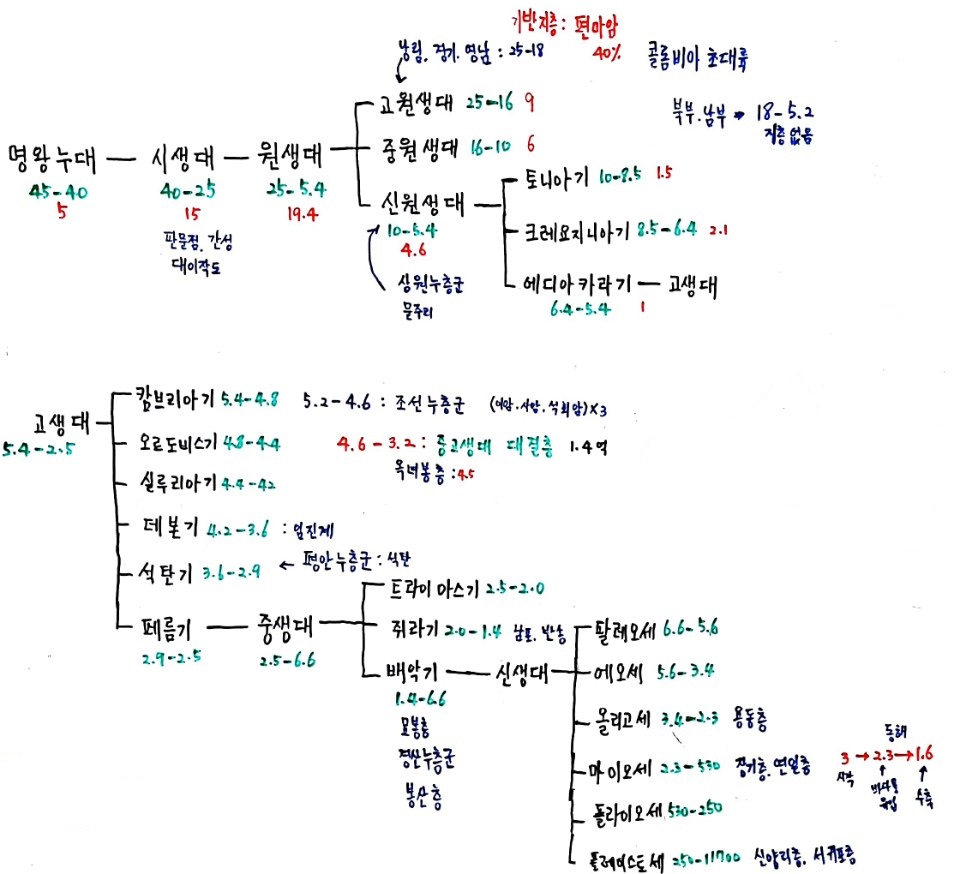 기반지층 : 편마암
40%
낭림, 경기, 영남 : 25-18
콜롬비아 초대륙
고원생대 25-16 9
북부, 남부 → 18-5.2
지층 없음
명왕누대 — 시생대 — 원생대
중원생대 16-10 6
45-40
5
40-25
15
25-5.4
19.4
판문점, 간성
대이작도
신원생대
10-5.4
4.6
상원누층군
문주리
토니아기 10-8.5 1.5
크레요지니아기 8.5-6.4 2.1
에디아카라기 — 고생대
6.4-5.4 1
고생대
5.4-2.5
캄브리아기 5.4-4.8
5.2-4.6 : 조선누층군 (이암.사암.석회암)×3
오르도비스기 4.8-4.4
4.6-3.2 : 중고생대 대결층 1.4억
옥녀봉층 : 4.5
실루리아기 4.4-4.2
데본기 4.2-3.6 : 임진계
석탄기 3.6-2.9 ← 평안누층군 : 석탄
페름기 — 중생대
2.9-2.5
2.5-6.6
트라이아스기 2.5-2.0
쥐라기 2.0-1.4 남포, 반송
백악기 — 신생대
1.4-6.6
묘봉층
경산누층군
봉산층
팔레오세 6.6-5.6
에오세 5.6-3.4
올리고세 3.4-2.3 용동층
마이오세 2.3-530 장기층, 연일층
플라이오세 530-250
플레이스토세 250-11700 신양리층, 서귀포층
동해
3 → 2.3 → 1.6
시작
유입
수축